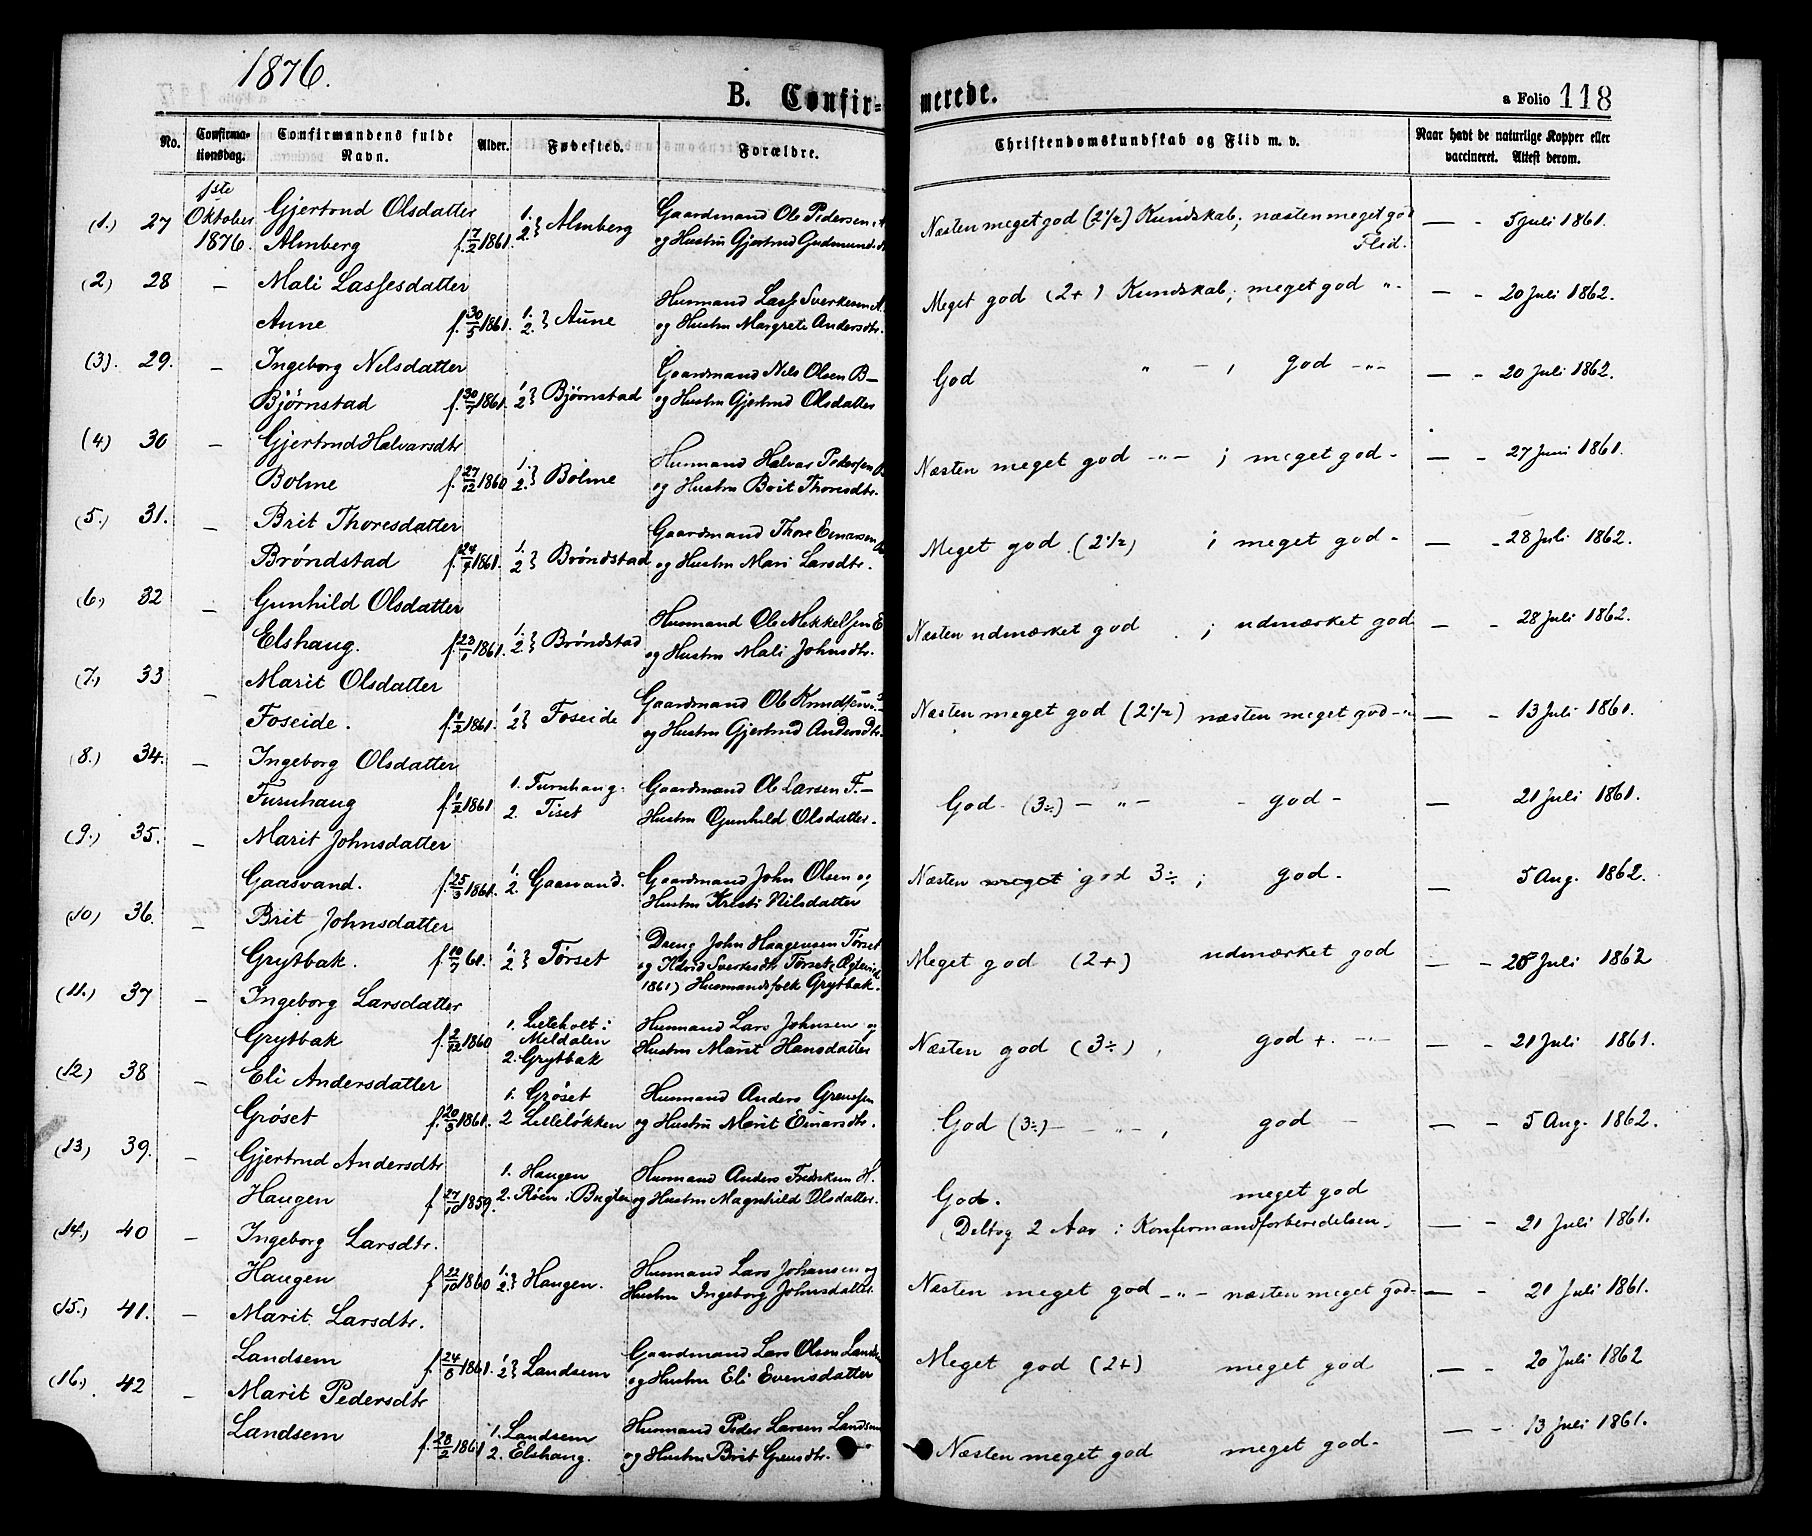 1876.
B. Confir-
merede.
a Folio 118
No.
Confirma-
tionsdag.
Confirmandens fulde
Navn.
Alder.
Fødested.
Forældre.
Christendomskundskab og Flid m. v.
Naar havt de naturlige Kopper eller
vaccineret. Attest derom.
(1.) 27 1ste Oktober 1876. Gjertrud Olsdatter
Almberg f. 7/2 1861. 1. 2. } Almberg Gaardmand Ole Pedersen A
og Hustru Gjertrud Gudmundsd. Næsten meget god (2 1/2) Kundskab; næsten meget god
Flid. — - 5 Juli 1861.
(2) 28 — Mali Lassesdatter
Aune f. 30/5 1861. 1. 2. } Aune Husmand Lass Sverkesen A.
og Hustru Margrete Andersdtr. Meget god (2+) Kundskab; meget god " - — - 20 Juli 1862.
(3). 29. — Ingeborg Nilsdatter
Bjørnstad f. 30/7 1861. 1 2 } Bjørnstad Gaardmand Nils Olsen B—
og Hustru Gjertrud Olsdatter God " - , god - " - — - 20 Juli 1862.
(4) 30 — Gjertrud Halvarsdtr
Bolme f. 27/12 1860 1. 2. } Bolme Husmand Halvar Pedersen
og Hustru Brit Thoresdtr. Næsten meget god - " - ; meget god - — - 27 Juni 1861.
(5.) 31. — Brit Thoresdatter
Brøndstad f. 24/9 1861. 1. 2 } Brøndstad Gaardmand Thore Einarsen
og Hustru Mari Larsdtr. Meget god (2 1/2) ; meget god - — - 28 Juli 1862.
(6.) 32 — Gunhild Olsdatter
Elshaug. f. 23/1 1861. 1. 2. } Brøndstad Husmand Ole Mekkelsen E
og Hustru Mali Johnsdtr. Næsten udmærket god ; udmærket god — - 28 Juli 1862.
(7.) 33 — Marit Olsdatter
Foseide. f. 1/2 1861. 1 2 } Foseide Gaardmand Ole Knudsen
og Hustru Gjertrud Andersdtr. Næsten meget god (2 1/2) næsten meget god - " — - 13 Juli 1861.
(8.) 34. — Ingeborg Olsdatter
Furuhaug f. 1/2 1861 1. Furuhaug.
2. Tiset Gaardmand Ole Larsen F.—
Hustru Gunhild Olsdatter. God - (3÷) - " - - god - — 21 Juli 1861.
(9.) 35. — Marit Johnsdatter
Gaasvand. f. 25/3 1861. 1. 2. Gaasvand. Gaardmand John Olsen og
Hustru Kristi Nilsdatter Næsten meget god 3÷ ; god - — 5 Aug. 1862.
(10) 36. — Brit Johnsdatter
Grytbak. f. 10/7 61. 1. 2 } Tørset Dreng John Haagensen Tørset
og Sverkesdtr Tørset
1861) Husmandsfolk Grytbak. Meget god (2+) udmærket god — - 28 Juli 1862
(11.) 37 — Ingeborg Larsdatter
Grytbak f. 2/12 1860 1. i
Meldalen
2. Grytbak Husmand Lars Johnsen og
Hustru Marit Hansdatter Næsten god (3÷) , god +. - " - — - 21 Juli 1861.
(12) 38 — Eli Andersdatter
Grøset f. 20/3 1861. 1. Grøset
2 Lilleløkken Husmand Anders Grensen
og Hustru Marit Einarsdtr. God (3÷) - - " - , god — - 5 Aug. 1862.
(13) 39. — Gjertrud Andersdtr
Haugen f. 27/10 1859. 1. Haugen
2. Røen i Husmand Anders Fredriksen H.
og Hustru Magnhild Olsdatter. God. meget god
(Deltog 2 Aar i Konfirmandforberedelsen. — - 21 Juli 1861.
(14.) 40 — Ingeborg Larsdtr.
Haugen f. 22/10 1860 1. 2. } Haugen. Husmand Lars Johansen og
Hustru Ingeborg Johnsdatter. Næsten meget god - " - næsten meget god - — - 21 Juli 1861.
(15.) 41. — Marit Larsdtr.
Landsem f. 24/8 1861. 1. 2 } Landsem Gaardmand Lars Olsen Landse
og Hustru Eli Evensdatter Meget god (2+) meget god — - 20 Juli 1862
(16.) 42 — Marit Pedersdtr
Landsem f. 28/2 1861 1. Landsem
2. Elshaug. Husmand Peder Larsen Landsem
og Hustru Brit Grensdtr. Næsten meget god meget god - — - 13 Juli 1861.